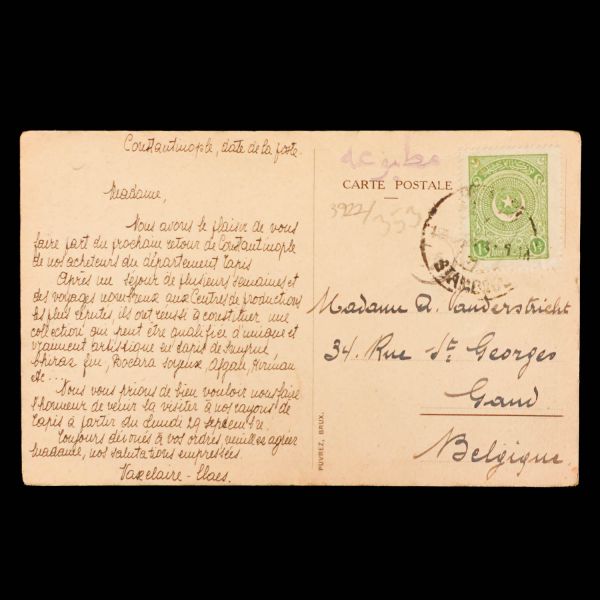 Constantinople, date de la poste.
Madame,
Nous avons le plaisir de vous
faire part du prochain retour de Constantinople
de nos acheteurs du département Tapis
Après un séjour de plusieurs semaines et
des voyages nombreux aux Centres de productions
les plus réputés, ils ont réussi à constituer une
collection qui peut être qualifiée d'unique et
vraiment artistique en tapis de Smyrne,
Shiraz fin, Bocara soyeux, Afgan, Kirman
etc...
Nous vous prions de bien vouloir nous faire
l'honneur de venir la visiter à nos rayons de
tapis à partir du lundi 29 septembre.
Toujours dévoués à vos ordres veuillez agréer
Madame, nos salutations empressées.
Vaxelaire-Claes.
CARTE POSTALE
3922/353
STAMBOUL
Madame A. Vanderstricht
34. Rue St Georges
Gand
Belgique.
PUVREZ, BRUX.